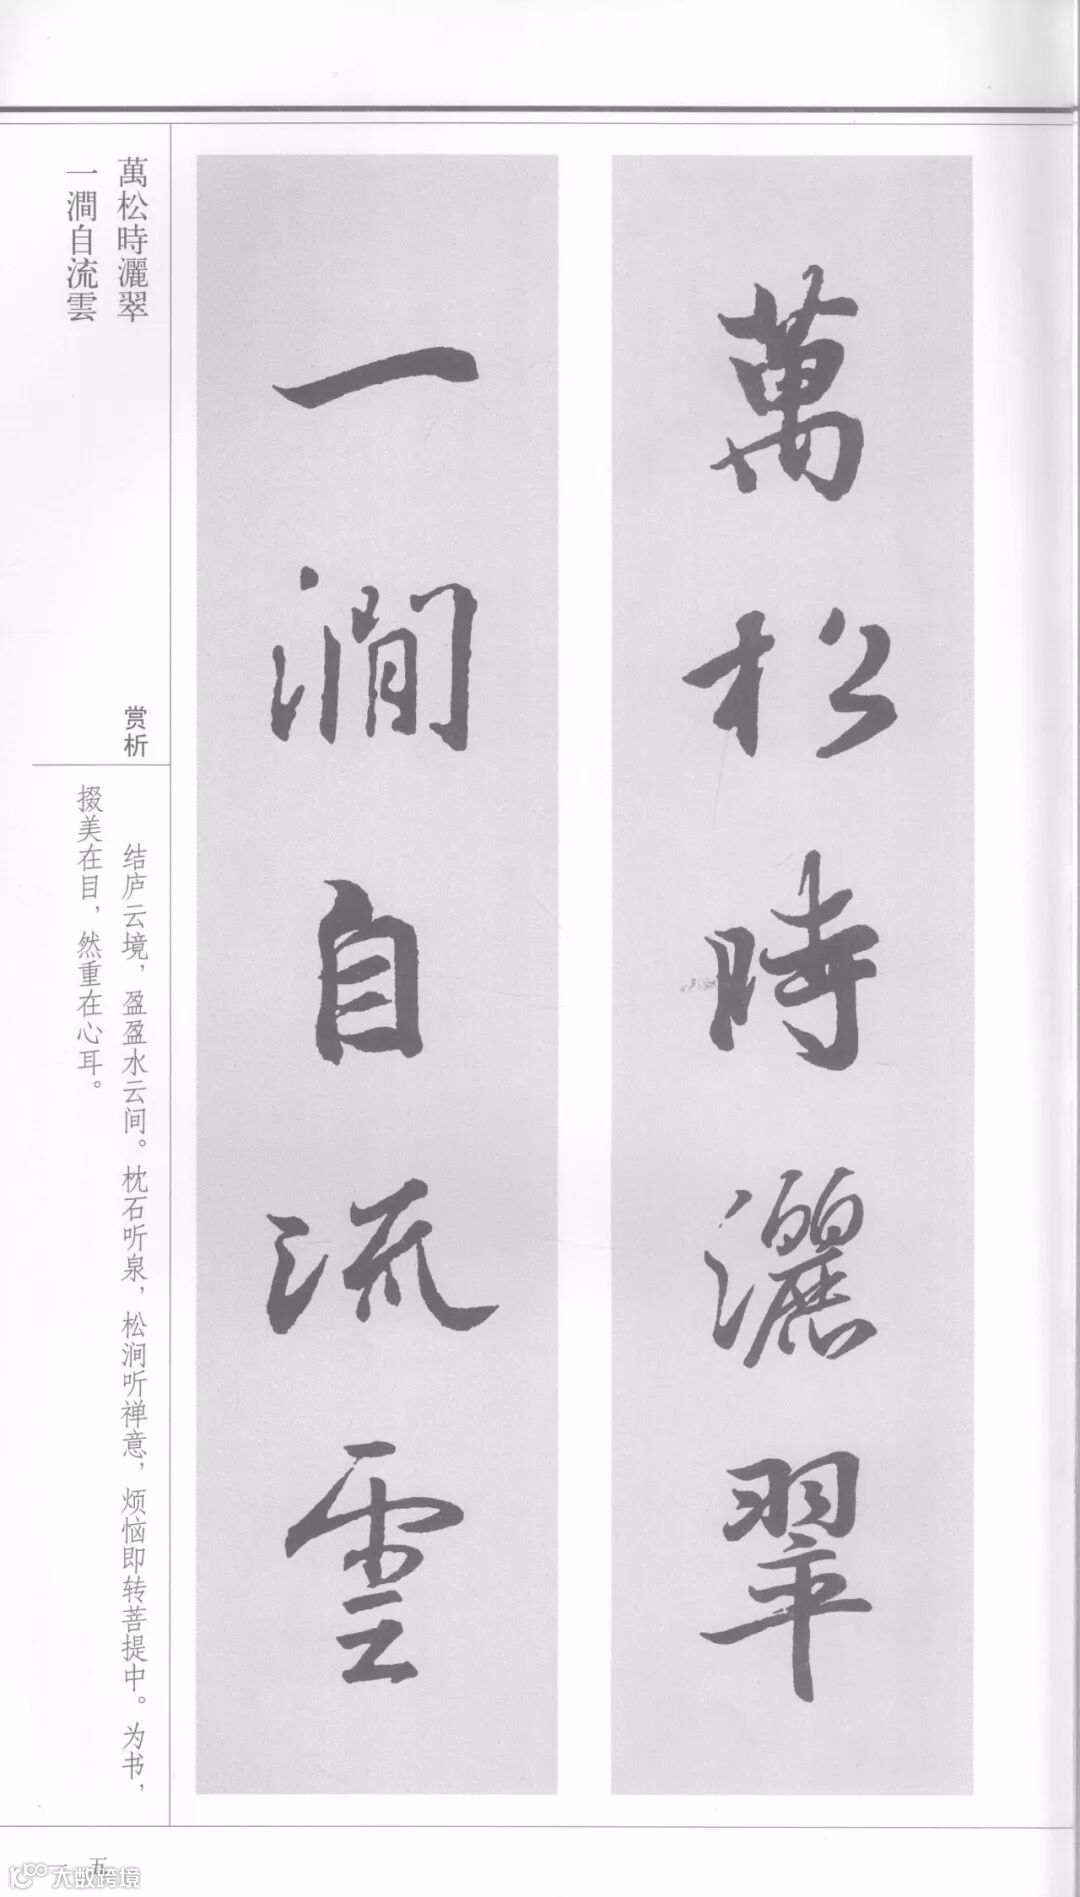 萬松時灑翠
一澗自流雲
萬松時灑翠
一澗自流雲
赏析
结庐云境，盈盈水云间。枕石听泉，松涧听禅意，烦恼即转菩提中。为书，
掇美在目，然重在心耳。
五
大数跨境